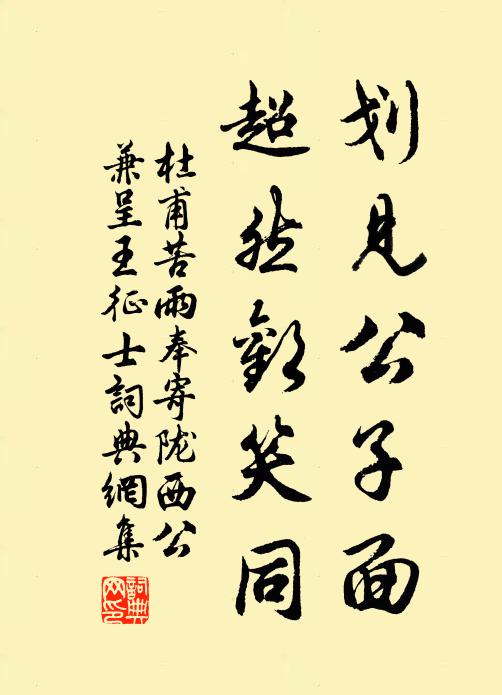 划見公子面
超然歡笑同
杜甫苦雨奉寄陇西公
兼呈王征士詞典網集